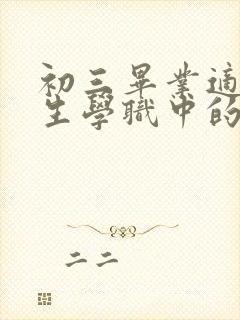 初三畢業適
生學職中的
二二